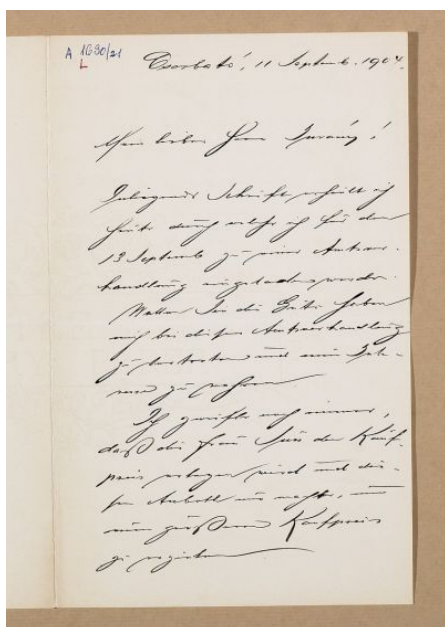 A 1690/21
L
Csorbató, 11 Septemb. 1904.
Mein lieber Herr Jurány!
Inliegende Schrift erhielt ich
heute durch welche ich für den
13 Septemb zu einer Amtsver-
handlung eingeladen werde.
Wollen Sie die Güte haben
mich bei dieser Amtsverhandlung
zu vertreten und mein Inte-
zu nehmen
Ich zweifle noch immer,
daß die Frau den Kauf-
preis erlegen wird und die-
sen Anbott nur machte, um
einen größeren Kaufpreis
zu erzielen